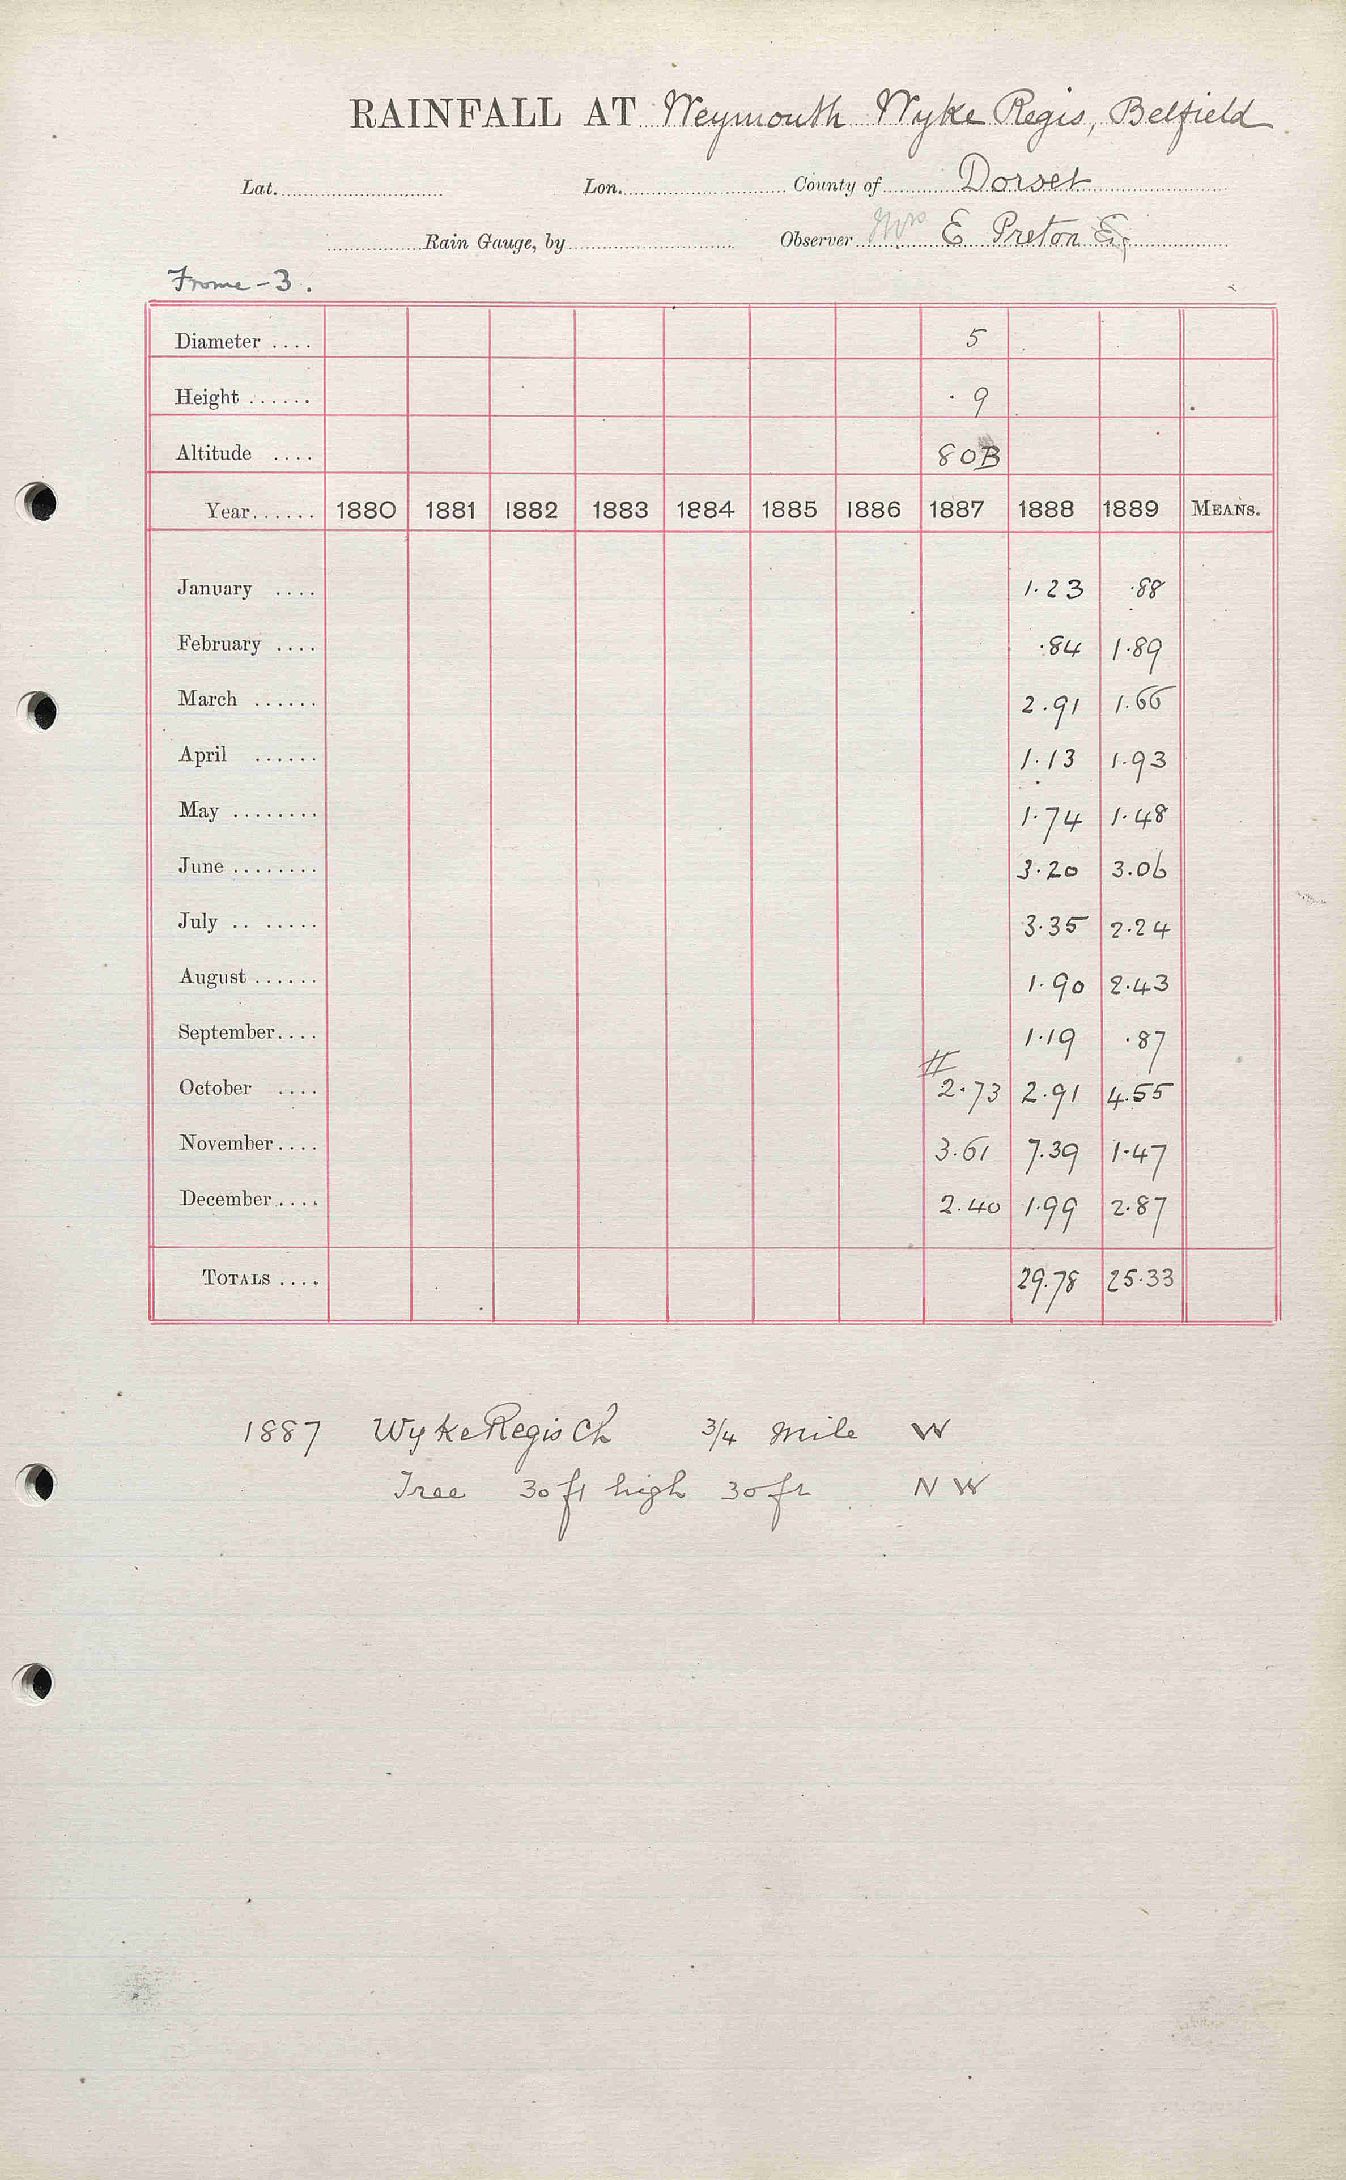 RAINFALL AT Weymouth Wyke Regis, Belfield
Lat. Lon. County of Dorset
Rain Gauge, by Observer Mrs E Preton Esq
Frome - 3.
Diameter .... 5
Height ...... · 9
Altitude .... 80B
Year...... 1880 1881 1882 1883 1884 1885 1886 1887 1888 1889 MEANS.
January .... 1.23 .88
February .... .84 1.89
March ...... 2.91 1.66
April ...... 1.13 1.93
May ........ 1.74 1.48
June ........ 3.20 3.06
July .. ..... 3.35 2.24
August ...... 1.90 2.43
September.... 1.19 .87
#
October .... 2.73 2.91 4.55
November.... 3.61 7.39 1.47
December.... 2.40 1.99 2.87
TOTALS .... 29.78 25.33
1887 Wyke Regis Ch 3/4 mile W
Tree 30 ft high 30 ft NW